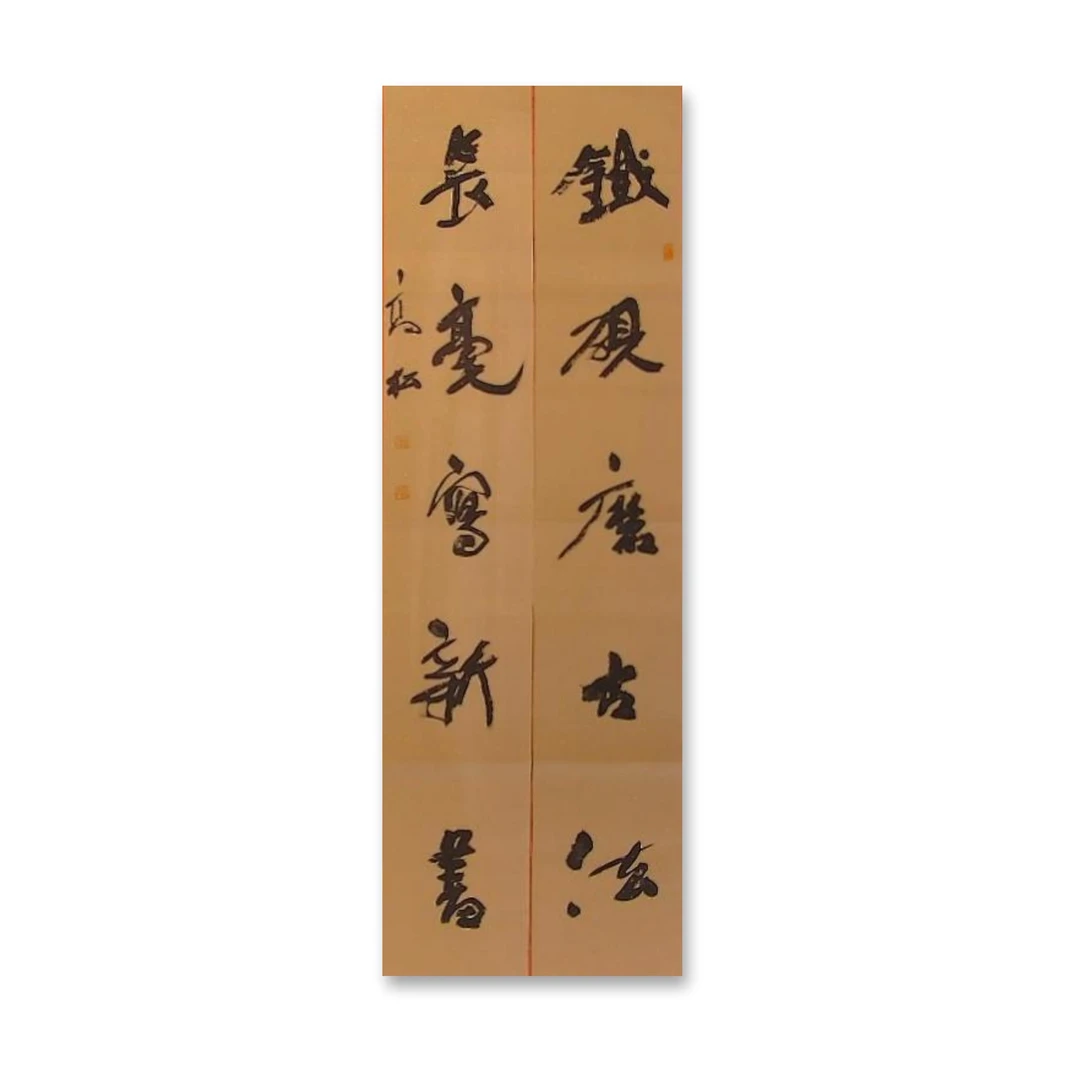 鐵硯磨古法
長毫寫新書
高松